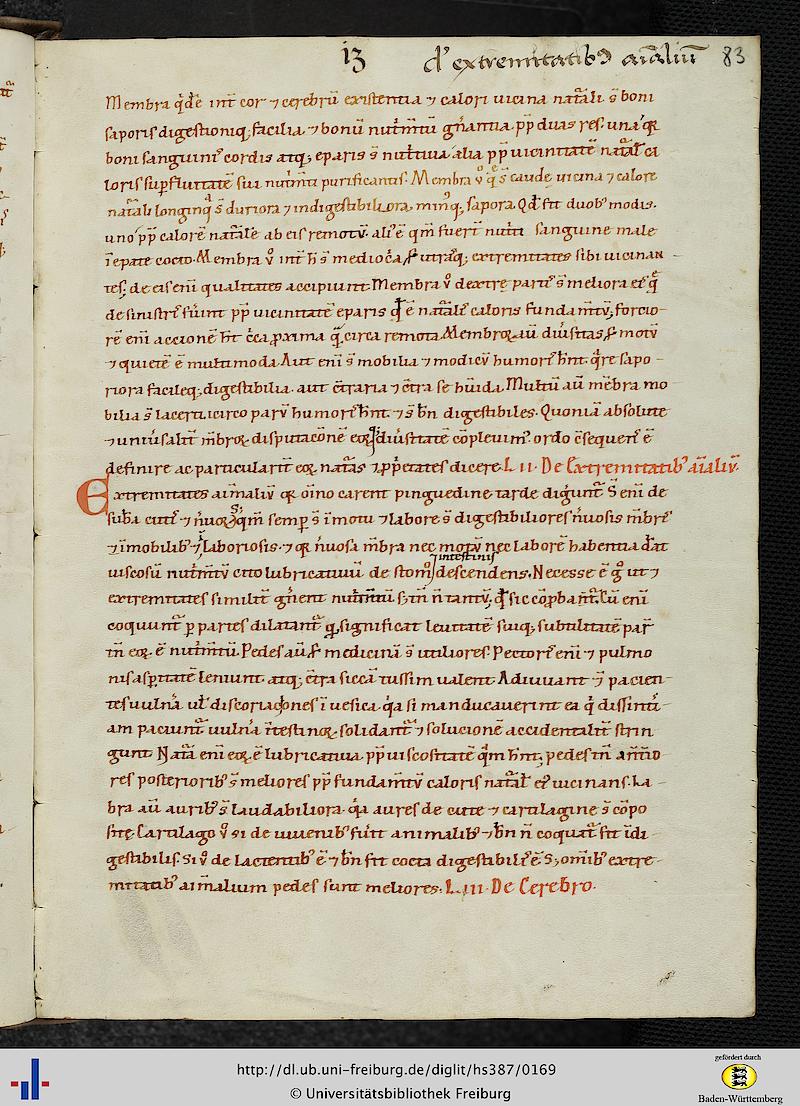 13 d' extremitatib9 aīaliū 83
Membra q̇dē int̄ cor ⁊ cerebrū existentia ⁊ calori uicina nat̄ali s̄ boni
saporis digestioniq; facilia ⁊ bonū nut̄mtū gn̄antia pp̄ duas res. una qꝛ
boni sanguinis cordis atq; eparis s̄ nut̄tiua alia pp̄ uicinitatē nat̄al ca
loris sup̄fluitatē sui nut̄mti purificantis. Membra v̊ q̄ s̄ caude uicina ⁊ calore
nat̄ali longinq̄ s̄ duriora ⁊ indigestibiliora, minꝰq; sapora. Qd̄ fit duob' modis.
uno pp̄ calorē nat̄alē ab eis remotū. aliꝰ ē qm̄ fuerī nut̄ti sanguine male
ī epate cocto. Membra v̊ int̄ h̄ s̄ mediocᷓa, s; utraq; extremitates sibi uicinan
tes; de eis enī qualitates accipiunt. Membra v̊ dextre partis s̄ meliora eis q̄
de sinistris fiunt pp̄ uicinitatē eparis qđ ē nat̄alis caloris fundam̄tū, forcio
rē enī accionē hn̄t cᷓca ꝓxima qᷓ circa remota. Membroꝝ aū diu̾sitas s; motū
⁊ quietē ē multimoda. Aut enī s̄ mobilia ⁊ modicū humoris hn̄t. qᷓre sapo
riora facileq; digestibilia. aut cᷓtraria ⁊ cᷓtra se hn̄ida. Multū aū mēbra mo
bilia s̄ lacerti. icirco parū humoris hn̄t. ⁊ s̄ bn̄ digestibiles. Quoniā absolute
⁊ uniu̾salit̄ m̄broꝝ disputacōnē eoꝝ⁊ diu̾sitatē cōpleuimꝰ. ordo cᷓsequens ē
definire ac particularit̄ eoꝝ nat̄as ⁊ ꝓp̄etates dicere. L II. De Extremitatib' aīaliū.
Extremitates aīmaliū qꝛ oīno carent pinguedine tarde digūnt̄. S̄ enī de
sub̄a cutis ⁊ n̄uoꝝ. Sꝫ qm̄ semp̄ s̄ ī motu ⁊ labore s̄ digestibiliores n̄uosis m̄bris
⁊ īmobilib' ⁊ n̄ laboriosis. ⁊ qꝛ n̄uosa m̄bra nec motū nec laborē habentia dāt
uiscosū nut̄mtū cito lubricatiuū de stomͦ ⁊ intestinis descendens. Necesse ē ḡ ut ⁊
extremitates similit̄ gn̄ent nut̄mtū s; tn̄ n̄ tantū. qđ sic cōꝓbant̄. Cū enī
coquunt̄ ꝑ partes dilatant̄ qđ significat leuitatē suiq; subtilitatē par
tn̄ eoꝝ ē nut̄mtū. Pedes aū s; medicinā s̄ utiliores. Pectoris enī ⁊ pulmo
nis asp̄itatē leniunt atq; cᷓtra siccā tussim ualent. Adiuuant ⁊ pacien
tes uulna ut discoriacōnes ī uesica. qᷓa si manducauerint ea q̇ dissinti
am paciunt̄ uulna ītestinoꝝ solidant̄ ⁊ solucionē accidentalit̄ strin
gunt. Nat̄a enī eoꝝ ē lubricatiua pp̄ uiscositatē qᷓm hn̄t; pedes tn̄ antͥo
res posteriorib' s̄ meliores pp̄ fundam̄tū caloris nat̄al eis uicinans. La
bra aū aurib' s̄ laudabiliora. qᷓa aures de cute ⁊ cartilagine s̄ cōpo
site. Cartilago v̊ si de iuuenib' fu̾it animalib' ⁊ bn̄ n̄ coquat̄ fit īdi
gestibilis. Si v̊ de lactentib' ē ⁊ bn̄ fit cocta digestibilis ē. S; oīmib' extre
mitatib' aīmalium pedes sunt meliores. L III. De Cerebro.
http://dl.ub.uni-freiburg.de/diglit/hs387/0169
© Universitätsbibliothek Freiburg
gefördert durch
Baden-Württemberg